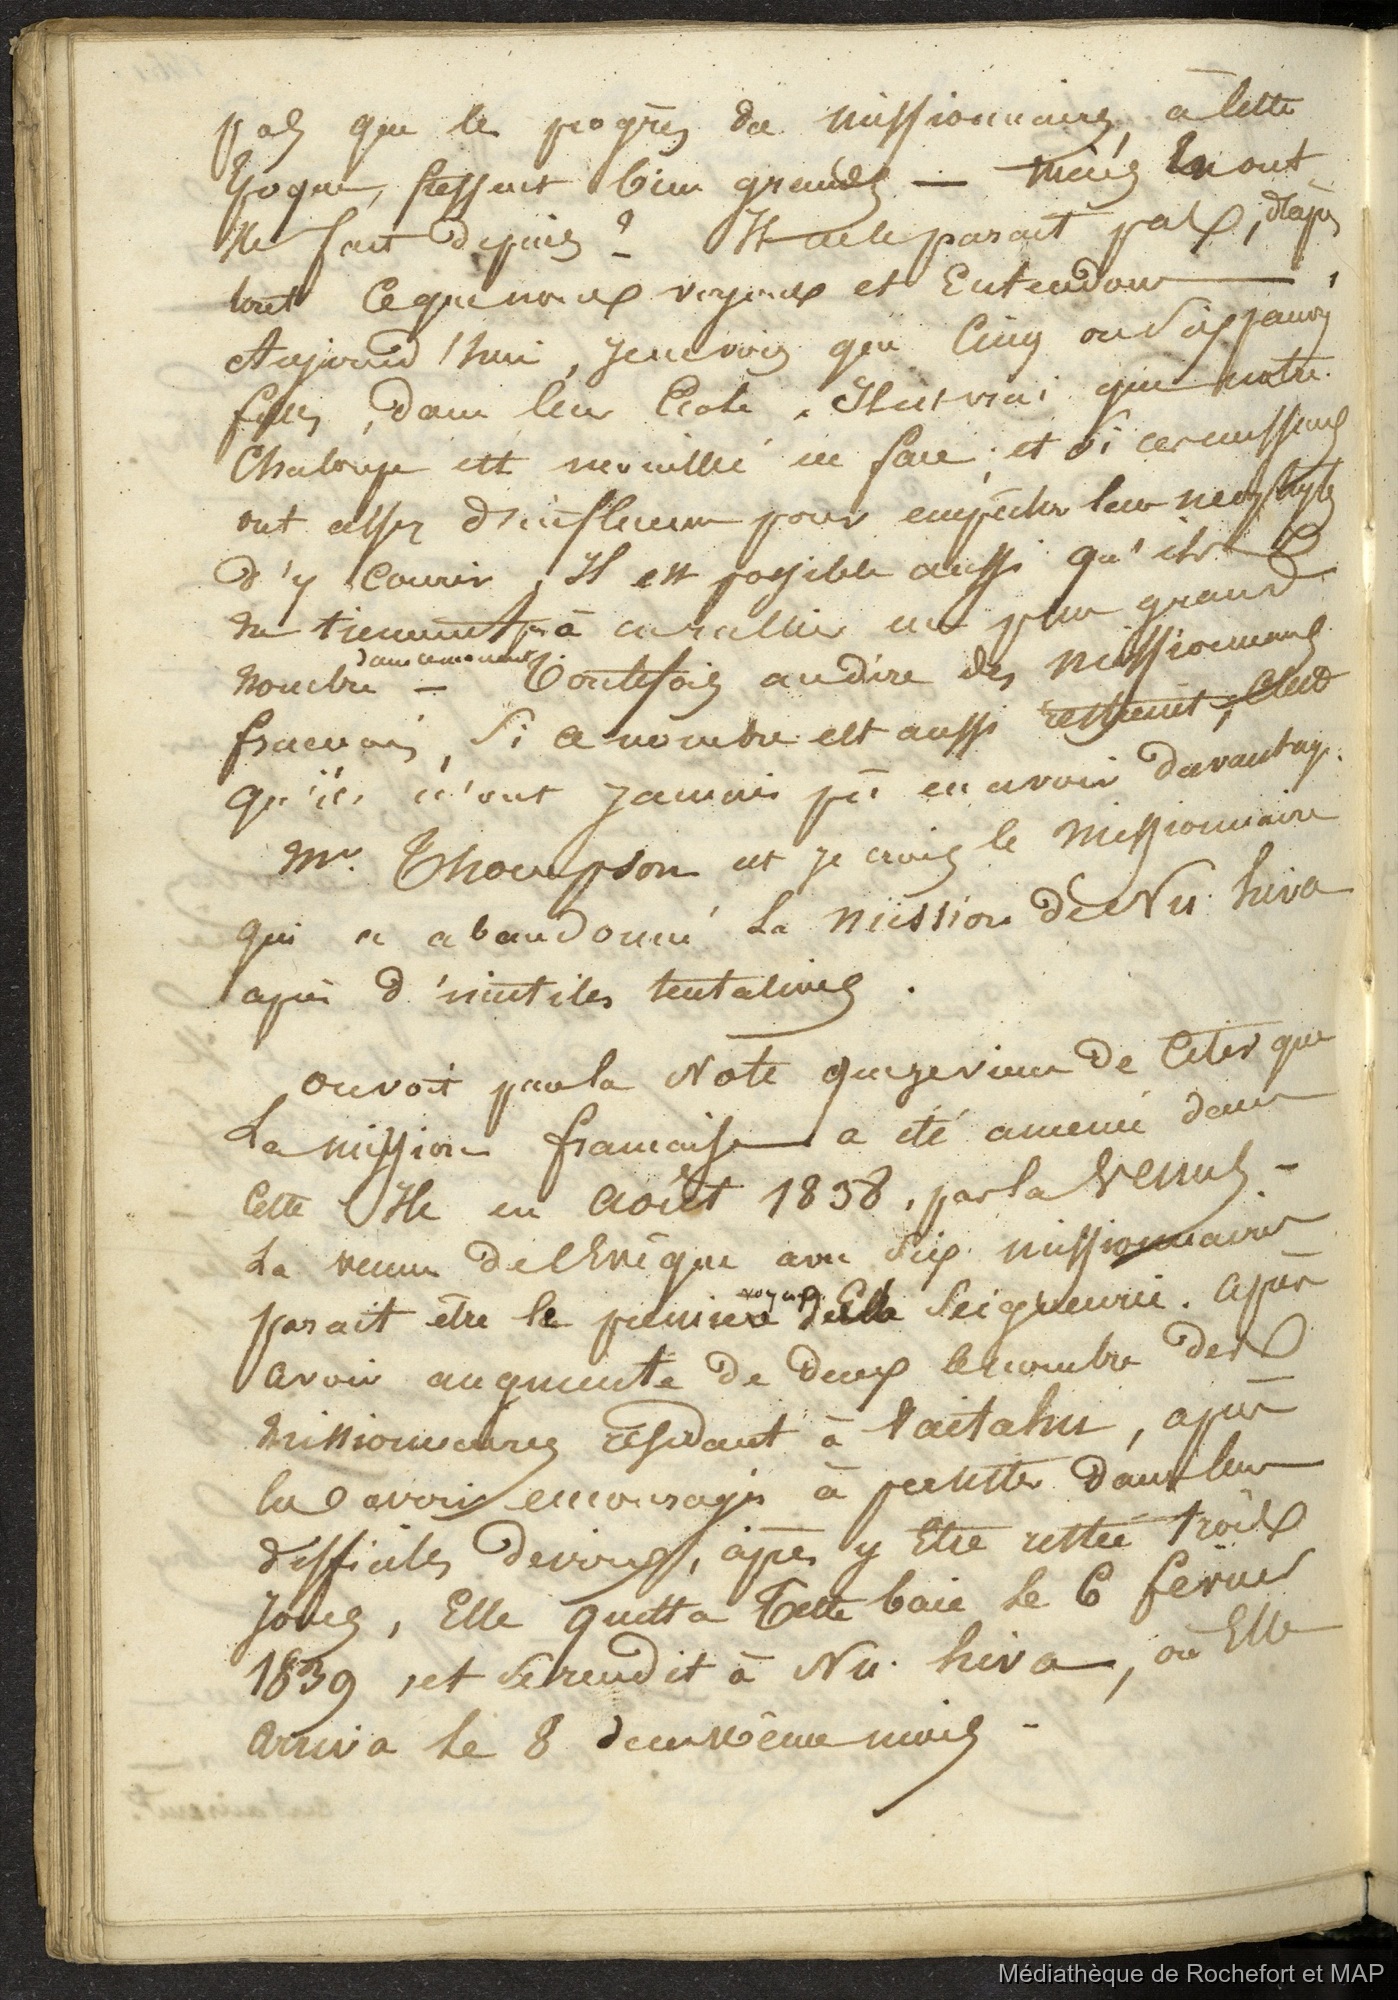 pas que les progrès des missionnaires, à cette
Epoque, fussent bien grands — Mais En ont-
Ils fait depuis ? Il ne le parait pas, d'après
tout ce que nous voyons et Entendons — ,
Aujourd'hui, je ne vois que Cinq ou Six jeunes
filles, dans leur Ecole. Il est vrai que notre
Chaloupe est mouillée en face ; et si ces messieurs
ont assez d'influence pour empêcher leurs neophytes
d'y courir, Il est possible aussi qu'ils
ne tiennent pas à en rallier un plus grand
nombre dans ce moment. — Toutefois au dire des missionnaires
francais, Si ce nombre est aussi restreint, c'est
qu'ils n'ont jamais pû en avoir davantage.
Mr. Thompson est je crois le Missionnaire
qui a abandonné la mission de Nu-hiva
après d'inutiles tentatives .
On voit par la Note que je viens de Citer que
La mission francaise a été amené dans
cette Ile en Août 1838, par la Venus. —
La venue de l'Evêque avec Six missionnaires
parait être le premier voyage de Sa Seigneurie. Après
avoir augmenté de deux le nombre des
missionnaires résidant à Vaitahu, après
les avoir encouragés à persister dans leurs
difficiles devoirs, après y Etre restée trois
jours, Elle quitta Cette baie le 6 fevrier
1839, et Se rendit à Nu-hiva, où Elle
arriva le 8 du même mois —
Médiathèque de Rochefort et MAP